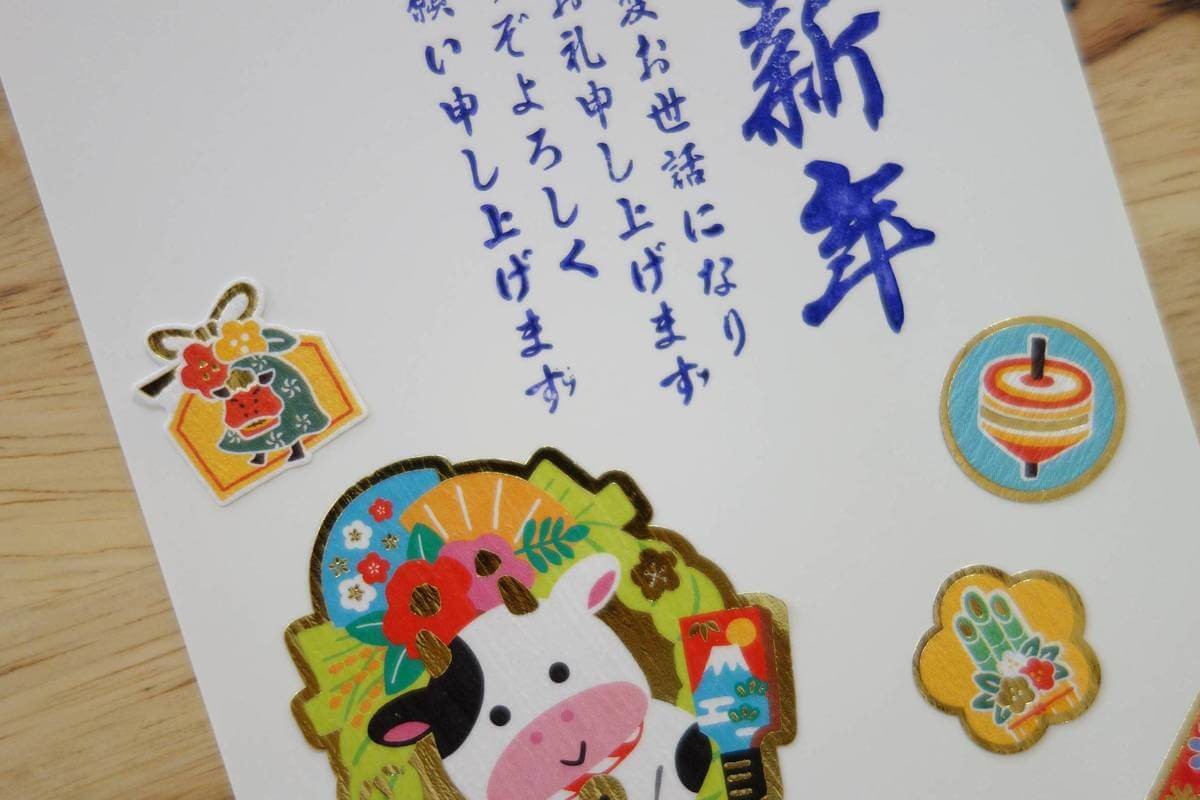 新年
変お世話になり
お礼申し上げます
ぞよろしく
願い申し上げます